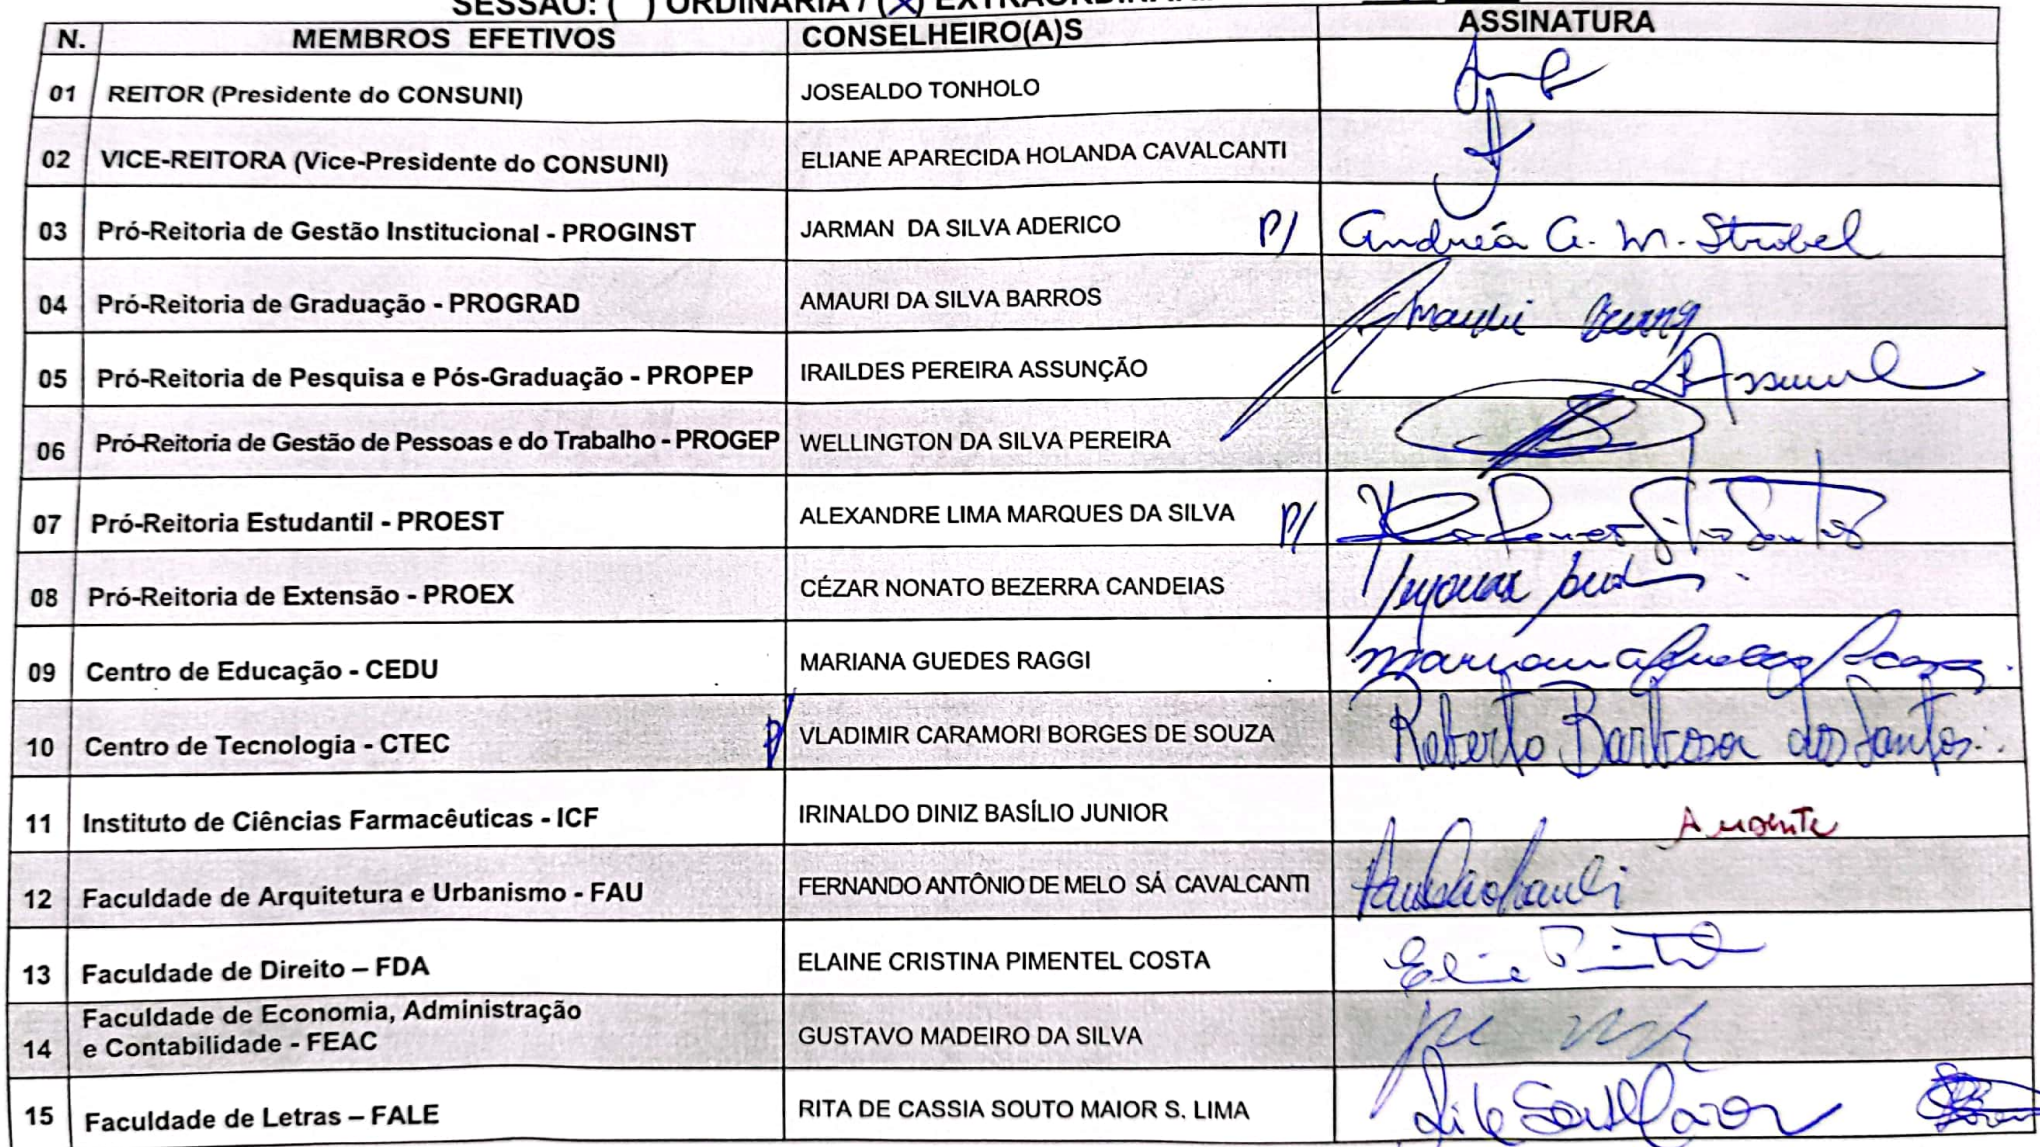 SESSÃO: ( ) ORDINÁRIA / (X) EXTRAORDINÁRIA
N. MEMBROS EFETIVOS CONSELHEIRO(A)S ASSINATURA
01 REITOR (Presidente do CONSUNI) JOSEALDO TONHOLO
02 VICE-REITORA (Vice-Presidente do CONSUNI) ELIANE APARECIDA HOLANDA CAVALCANTI
03 Pró-Reitoria de Gestão Institucional - PROGINST JARMAN DA SILVA ADERICO P/ Andréa A. M. Strobel
04 Pró-Reitoria de Graduação - PROGRAD AMAURI DA SILVA BARROS Amauri Barros
05 Pró-Reitoria de Pesquisa e Pós-Graduação - PROPEP IRAILDES PEREIRA ASSUNÇÃO
06 Pró-Reitoria de Gestão de Pessoas e do Trabalho - PROGEP WELLINGTON DA SILVA PEREIRA
07 Pró-Reitoria Estudantil - PROEST ALEXANDRE LIMA MARQUES DA SILVA P/
08 Pró-Reitoria de Extensão - PROEX CÉZAR NONATO BEZERRA CANDEIAS
09 Centro de Educação - CEDU MARIANA GUEDES RAGGI Mariana Guedes Raggi
10 Centro de Tecnologia - CTEC P/ VLADIMIR CARAMORI BORGES DE SOUZA Roberto Barbosa dos Santos
11 Instituto de Ciências Farmacêuticas - ICF IRINALDO DINIZ BASÍLIO JUNIOR Ausente
12 Faculdade de Arquitetura e Urbanismo - FAU FERNANDO ANTÔNIO DE MELO SÁ CAVALCANTI
13 Faculdade de Direito – FDA ELAINE CRISTINA PIMENTEL COSTA
Faculdade de Economia, Administração
14 e Contabilidade - FEAC GUSTAVO MADEIRO DA SILVA
15 Faculdade de Letras – FALE RITA DE CASSIA SOUTO MAIOR S. LIMA Rita Souto Maior